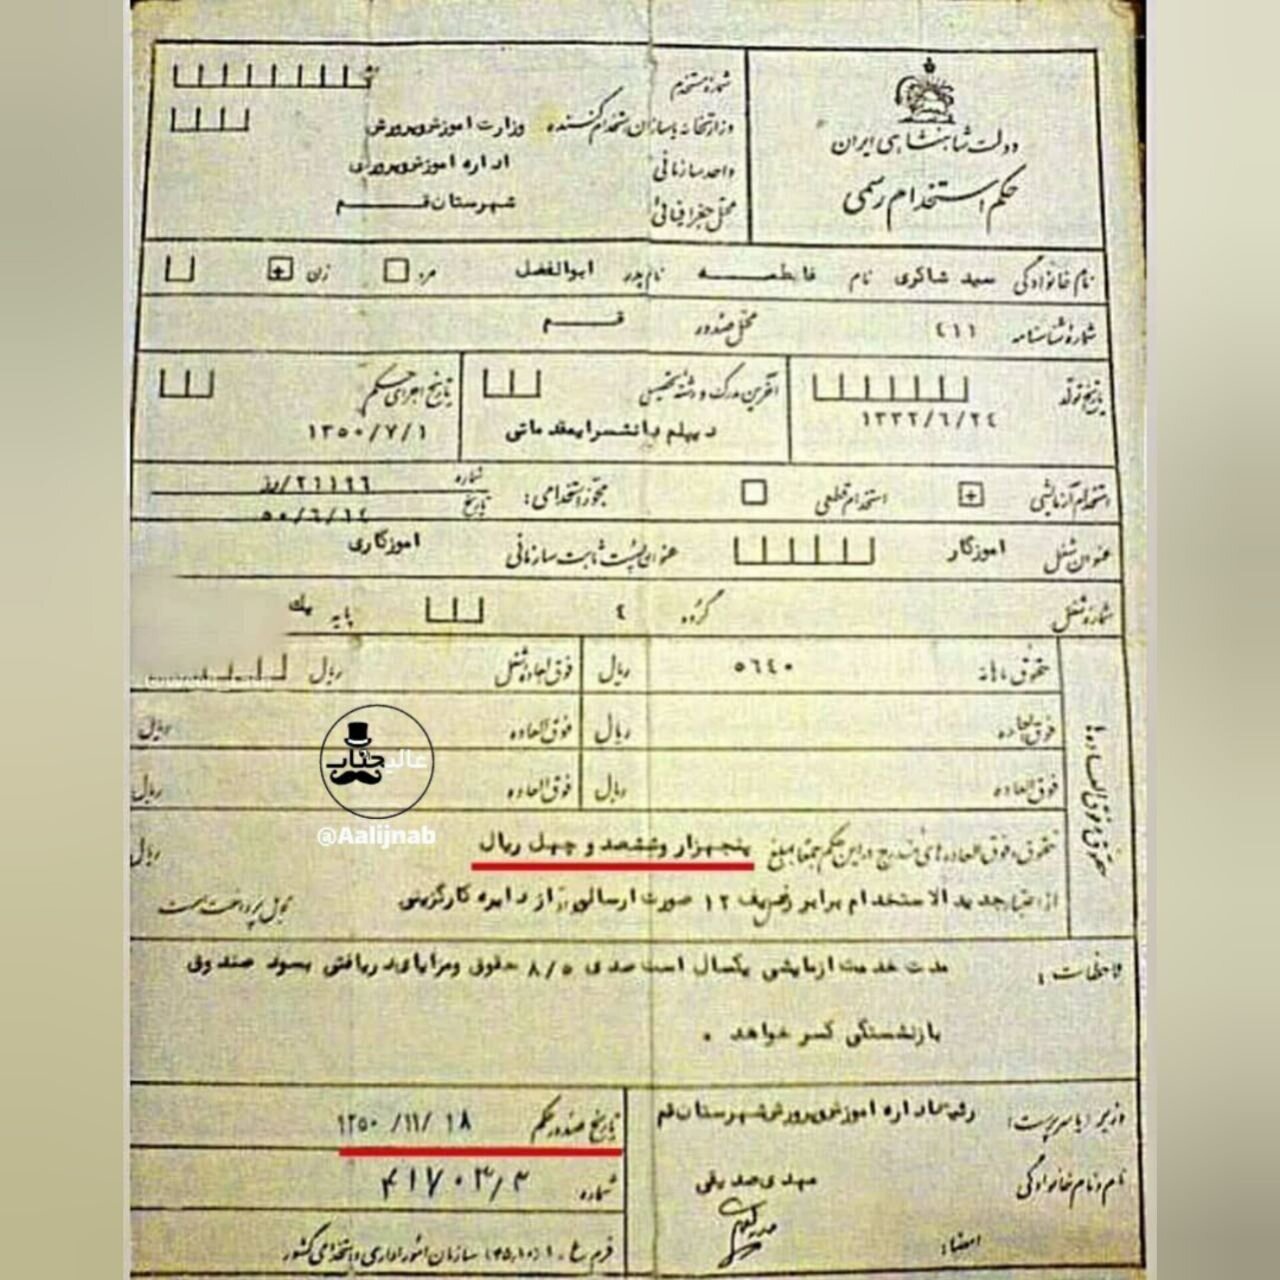 دولت شاهنشاهی ایران
حکم استخدام رسمی
شماره مستخدم
وزارتخانه یا سازمان استخدام کننده وزارت اموزش وپرورش
واحد سازمانی اداره اموزش وپرورش
محل جغرافیائی شهرستان قم
نام خانوادگی سید شاکری نام فاطمه نام پدر ابوالفضل مرد زن
شماره شناسنامه ٤١١ محل صدور قم
تاریخ تولد ١٣٣٢/٦/٢٤
آخرین مدرک و رشته تحصیلی
دیپلم دانشسرایمقدماتی
تاریخ اجرای حکم
١٣٥٠/٧/١
استخدام آزمایشی استخدام قطعی مجوز استخدامی:
شماره ٢١١٩٦/رز
تاریخ ٥٠/٦/١٤
عنوان شغل اموزگار عنوان پست ثابت سازمانی اموزگاری
شماره شغل گروه ٤ پایه یک
حقوق و فوق العاده ها
حقوق ماهانه ٥٦٤٠ ریال فوق العاده شغل ریال
فوق العاده ریال فوق العاده ریال
فوق العاده ریال فوق العاده ریال
حقوق و فوق العاده های مندرج در این حکم جمعا بمبلغ پنجهزار وششصد و چهل ریال ریال
از اعتبار جدید الاستخدام برابر ردیف ١٢ صورت ارسالی از دایره کارگزینی قابل پرداخت است
ملاحظات : مدت خدمت ازمایشی یکسال است صدی ٨/٥ حقوق ومزایای دریافتی بسود صندوق
بازنشستگی کسر خواهد .
وزیر (یا سرپرست): رئیس اداره اموزش وپرورش شهرستان قم
نام و نام خانوادگی مهدی صدیقی
امضاء:
تاریخ صدور حکم ۱۳۵۰/۱۱/۱۸
شماره ۴۱۷۰۳/۳
سازمان امور اداری و استخدامی کشور
عالیجناب
@Aalijnab